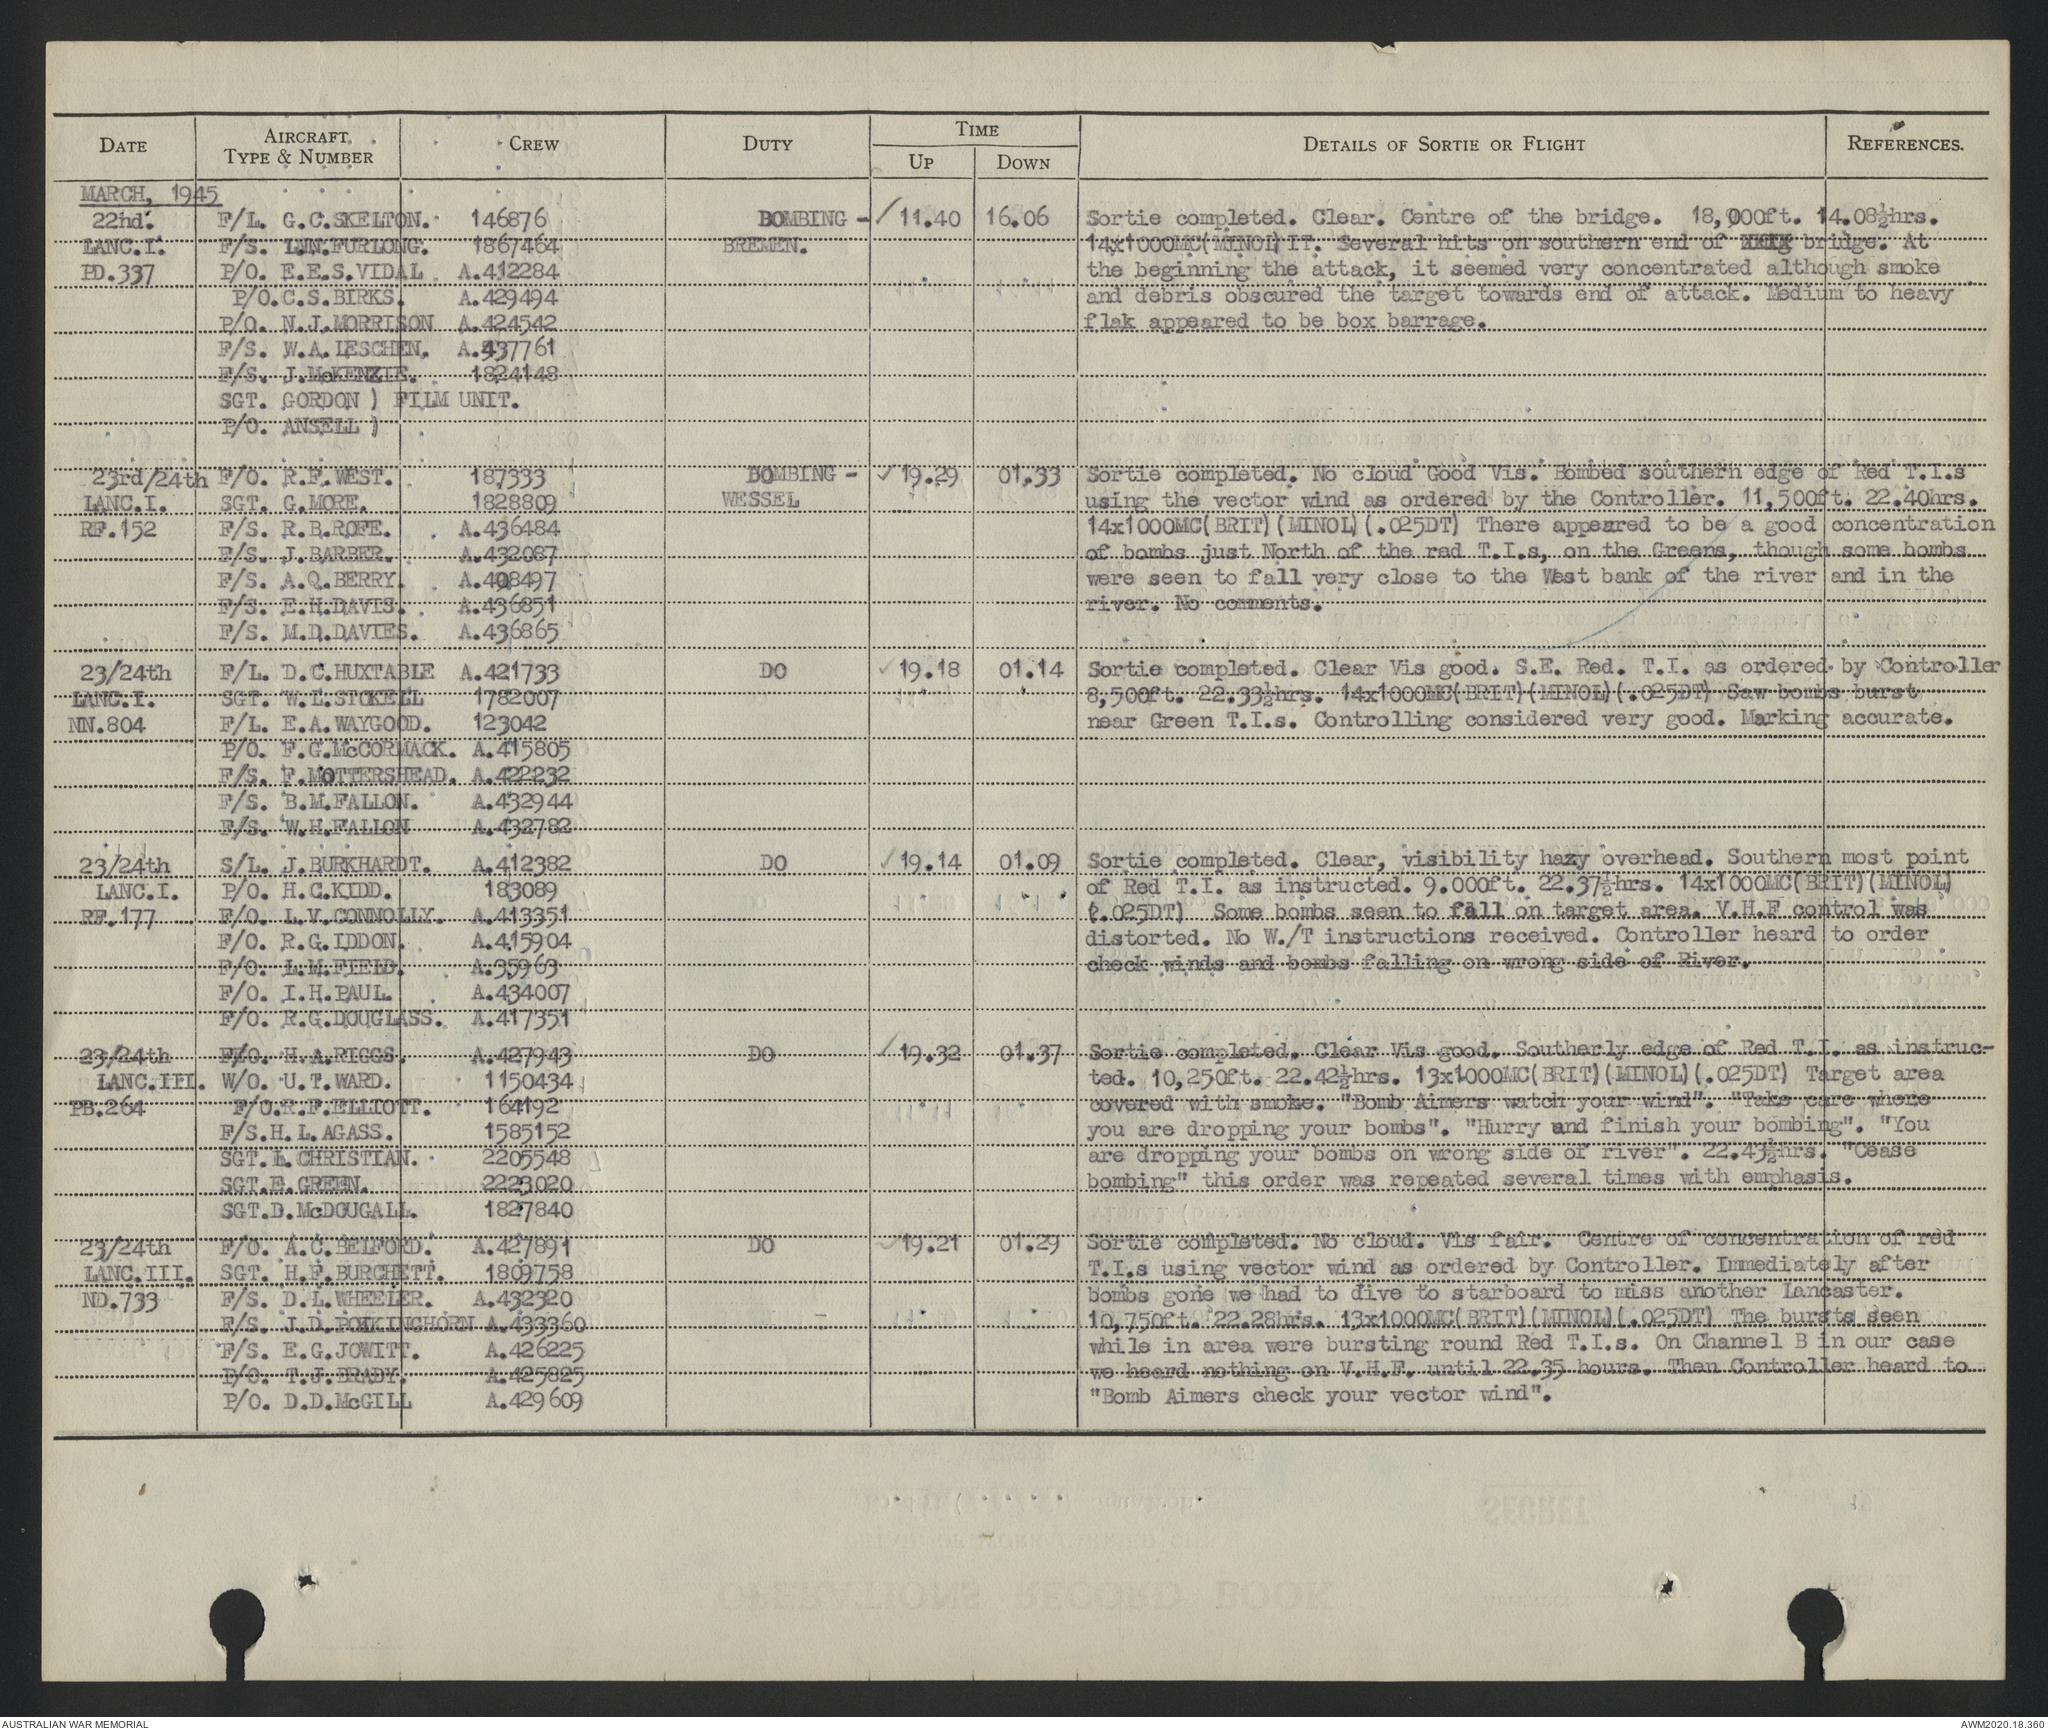 DATE AIRCRAFT TYPE & NUMBER CREW DUTY TIME UP DOWN DETAILS OF SORTIE OR FLIGHT REFERENCES.
MARCH, 1945
22nd. F/L. G.C.SKELTON. 146876 BOMBING - 11.40 16.06 Sortie completed. Clear. Centre of the bridge. 18,000ft. 14.08½hrs.
LANC.I. F/S. L.N.FURLONG. 1867464 BREMEN. 14x1000MC(MINOL) IT. Several hits on southern end of bridge. At
PD.337 P/O. E.E.S.VIDAL A.412284 the beginning the attack, it seemed very concentrated although smoke
P/O.C.S.BIRKS. A.429494 and debris obscured the target towards end of attack. Medium to heavy
P/O. N.J.MORRISON A.424542 flak appeared to be box barrage.
F/S. W.A.LESCHEN. A.437761
F/S. J.McKENZIE. 1824148
SGT. GORDON ) FILM UNIT.
P/O. ANSELL )
23rd/24th F/O. R.F.WEST. 187333 BOMBING - 19.29 01.33 Sortie completed. No cloud Good Vis. Bombed southern edge of Red T.I.s
LANC.I. SGT. G.MORE. 1828809 WESSEL using the vector wind as ordered by the Controller. 11,500ft. 22.40hrs.
RF.152 F/S. R.B.ROFE. A.436484 14x1000MC(BRIT)(MINOL)(.025DT) There appeared to be a good concentration
F/S. J.BARBER. A.432087 of bombs just North of the red T.I.s, on the Greens, though some bombs
F/S. A.Q.BERRY. A.408497 were seen to fall very close to the West bank of the river and in the
F/S. E.H.DAVIS. A.436851 river. No comments.
F/S. M.D.DAVIES. A.436865
23/24th F/L. D.C.HUXTABLE A.421733 DO 19.18 01.14 Sortie completed. Clear Vis good. S.E. Red. T.I. as ordered by Controller
LANC.I. SGT. W.L.STOKELL 1782007 8,500ft. 22.33½hrs. 14x1000MC(BRIT)(MINOL)(.025DT) Saw bombs burst
NN.804 F/L. E.A.WAYGOOD. 123042 near Green T.I.s. Controlling considered very good. Marking accurate.
P/O. F.G.McCORMACK. A.415805
F/S. F.MOTTERSHEAD. A.422232
F/S. B.M.FALLON. A.432944
F/S. W.H.FALLON A.432782
23/24th S/L. J.BURKHARDT. A.412382 DO 19.14 01.09 Sortie completed. Clear, visibility hazy overhead. Southern most point
LANC.I. P/O. H.C.KIDD. 183089 of Red T.I. as instructed. 9.000ft. 22.37½hrs. 14x1000MC(BRIT)(MINOL)
RF.177 F/O. L.V.CONNOLLY. A.413351 (.025DT) Some bombs seen to fall on target area. V.H.F control was
F/O. R.G.IDDON. A.415904 distorted. No W./T instructions received. Controller heard to order
F/O. L.M.FIELD. A.35963 check winds and bombs falling on wrong side of River.
F/O. I.H.PAUL. A.434007
F/O. R.G.DOUGLASS. A.417351
23/24th F/O. H.A.RIGGS. A.427943 DO 19.32 01.37 Sortie completed. Clear Vis good. Southerly edge of Red T.I. as instruc-
LANC.III. W/O. U.T.WARD. 1150434 ted. 10,250ft. 22.42½hrs. 13x1000MC(BRIT)(MINOL)(.025DT) Target area
PB.264 F/O.R.F.ELLIOTT. 164192 covered with smoke. "Bomb Aimers watch your wind". "Take care where
F/S.H.L.AGASS. 1585152 you are dropping your bombs". "Hurry and finish your bombing". "You
SGT.L.CHRISTIAN. 2205548 are dropping your bombs on wrong side of river". 22.43½hrs. "Cease
SGT.E.GREEN. 2223020 bombing" this order was repeated several times with emphasis.
SGT.D.McDOUGALL. 1827840
23/24th F/O. A.C.BELFORD. A.427891 DO 19.21 01.29 Sortie completed. No cloud. Vis fair. Centre of concentration of red
LANC.III. SGT. H.F.BURCHETT. 1809758 T.I.s using vector wind as ordered by Controller. Immediately after
ND.733 F/S. D.L.WHEELER. A.432320 bombs gone we had to dive to starboard to miss another Lancaster.
F/S. J.D.POLKINGHORN A.433360 10,750ft. 22.28hrs. 13x1000MC(BRIT)(MINOL)(.025DT) The bursts seen
F/S. E.G.JOWITT. A.426225 while in area were bursting round Red T.I.s. On Channel B in our case
P/O. T.J.BRADY. A.425825 we heard nothing on V.H.F. until 22.35 hours. Then Controller heard to
P/O. D.D.McGILL A.429609 "Bomb Aimers check your vector wind".
AUSTRALIAN WAR MEMORIAL AWM2020.18.360